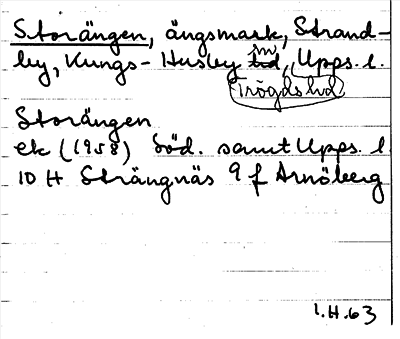 Storängen, ängsmark, Strand-
by, Kungs-Husby sn, Upps. l.
Trögds hd
Storängen
ek (1958) Söd. samt Upps. l
10 H Strängnäs 9 f Arnöberg
1.H.63